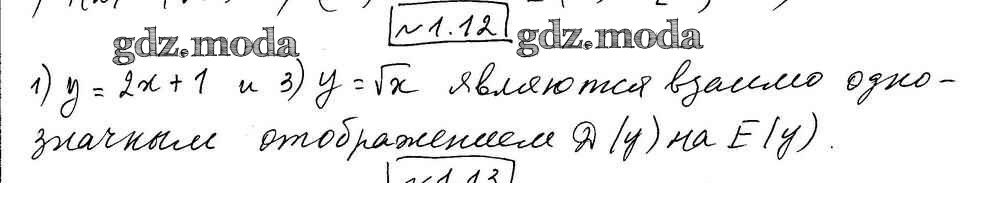 №1.12
gdz.moda gdz.moda
1) y = 2x + 1 и 3) y = √x являются взаимо одно-
значным отображением D(y) на E(y).
№1.13